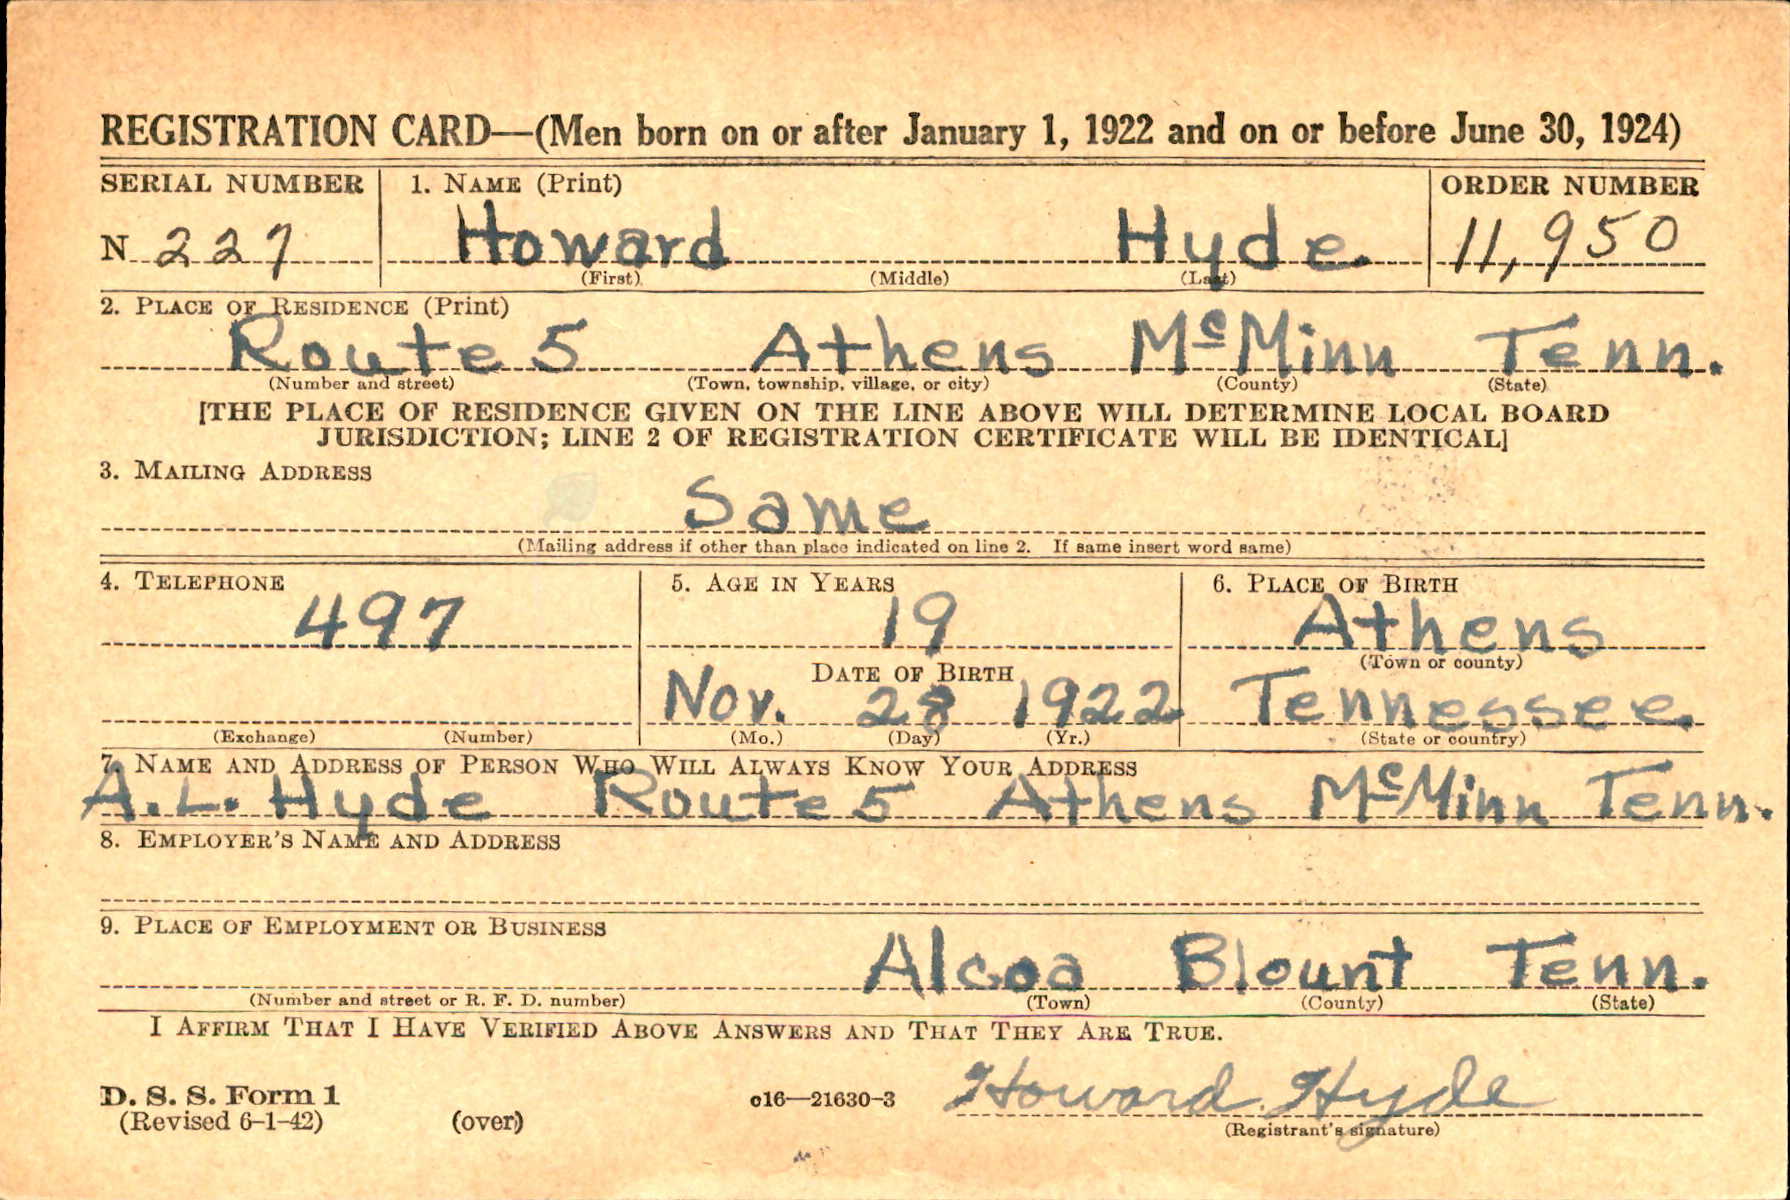 REGISTRATION CARD—(Men born on or after January 1, 1922 and on or before June 30, 1924)
SERIAL NUMBER 1. NAME (Print) ORDER NUMBER
N 227 Howard Hyde. 11,950
(First) (Middle) (Last)
2. PLACE OF RESIDENCE (Print)
Route 5 Athens McMinn Tenn.
(Number and street) (Town, township, village, or city) (County) (State)
[THE PLACE OF RESIDENCE GIVEN ON THE LINE ABOVE WILL DETERMINE LOCAL BOARD
JURISDICTION; LINE 2 OF REGISTRATION CERTIFICATE WILL BE IDENTICAL]
3. MAILING ADDRESS
Same
(Mailing address if other than place indicated on line 2. If same insert word same)
4. TELEPHONE 5. AGE IN YEARS 6. PLACE OF BIRTH
497 19 Athens
(Town or county)
DATE OF BIRTH
Nov. 28 1922 Tennessee.
(Exchange) (Number) (Mo.) (Day) (Yr.) (State or country)
7. NAME AND ADDRESS OF PERSON WHO WILL ALWAYS KNOW YOUR ADDRESS
A.L. Hyde Route 5 Athens McMinn Tenn.
8. EMPLOYER'S NAME AND ADDRESS
9. PLACE OF EMPLOYMENT OR BUSINESS
Alcoa Blount Tenn.
(Number and street or R. F. D. number) (Town) (County) (State)
I AFFIRM THAT I HAVE VERIFIED ABOVE ANSWERS AND THAT THEY ARE TRUE.
D. S. S. Form 1
(Revised 6-1-42) (over) c16—21630-3 Howard Hyde
(Registrant's signature)